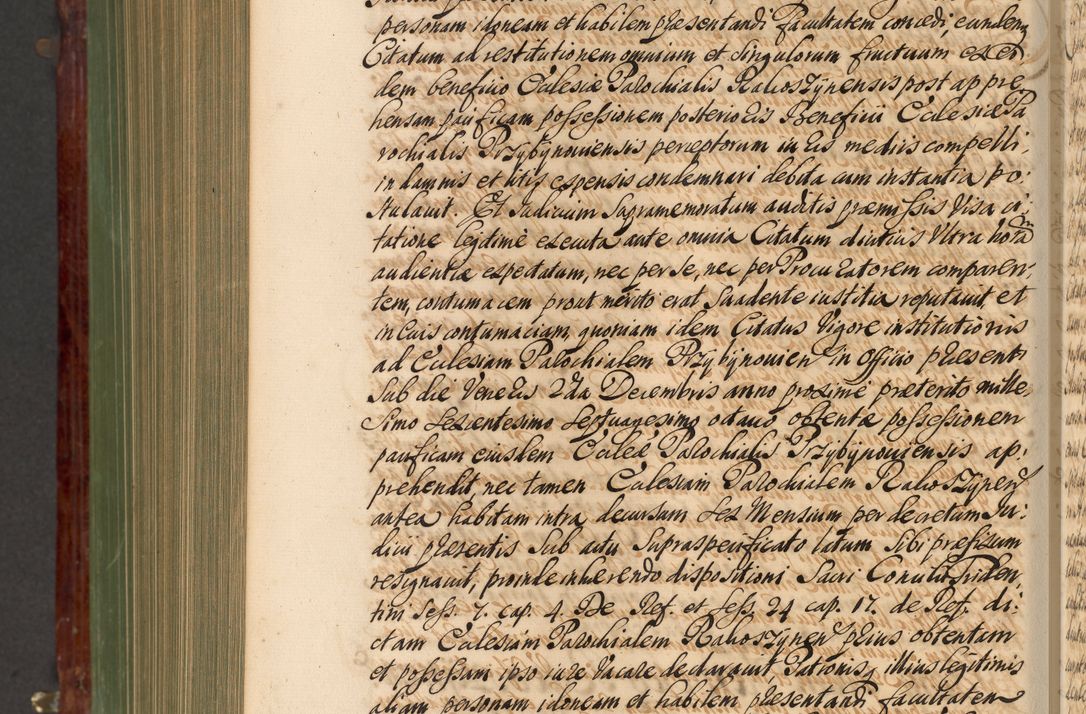 personam idoneam et habilem præsentandi facultatem concedi, eundem
Citatum ad restitutionem omnium et singulorum fructuum ex ea
dem beneficio Ecclesiæ Parochialis Raboszynensis post appre
hensam pacificam possessionem posterioris Beneficii Ecclesiæ Pa
rochialis Przybynoviensis perceptorum iuris mediis compelli,
in damnis et litis expensis condemnari debita cum instantia po:
stulavit. Et Iudicium Supramemoratum auditis præmissis Visa ci:
tatione legitimè executa ante omnia Citatum diutius Ultra horam
audientiæ expectatum, nec per se, nec per Procuratorem comparen:
tem, contumacem prout merito erat Suadente iustitia reputavit et
in eius contumaciam, quoniam idem Citatus Vigore institutionis
ad Ecclesiam Parochialem Przybynovien in Officio præsenti
Sub die Veneris 2da Decembris anno proximè præterito mille,
simo sexcentesimo septuagesimo octavo obtentæ possessionem
pacificam eiusdem Ecclæ Parochialis Przybynoviensis ap:
prehendit, nec tamen Ecclesiam Parochialem Raboszynen
antea habitam intra decursum sex Mensium per decretum Iu:
dicii præsentis Sub actu Supraspecificato latum Sibi præfixum
resignavit, proinde inhærendo dispositioni Sacri Concilii Triden,
tini Sess. 7. cap. 4. De Ref. et sess. 24 cap. 17. de Ref. di:
ctam Ecclesiam Parochialem Raboszynen prius obtentam
et possessam ipso iure Vacare declaravit Patronisq illius legitimis
aliam personam idoneam et habilem præsentandi facultatem